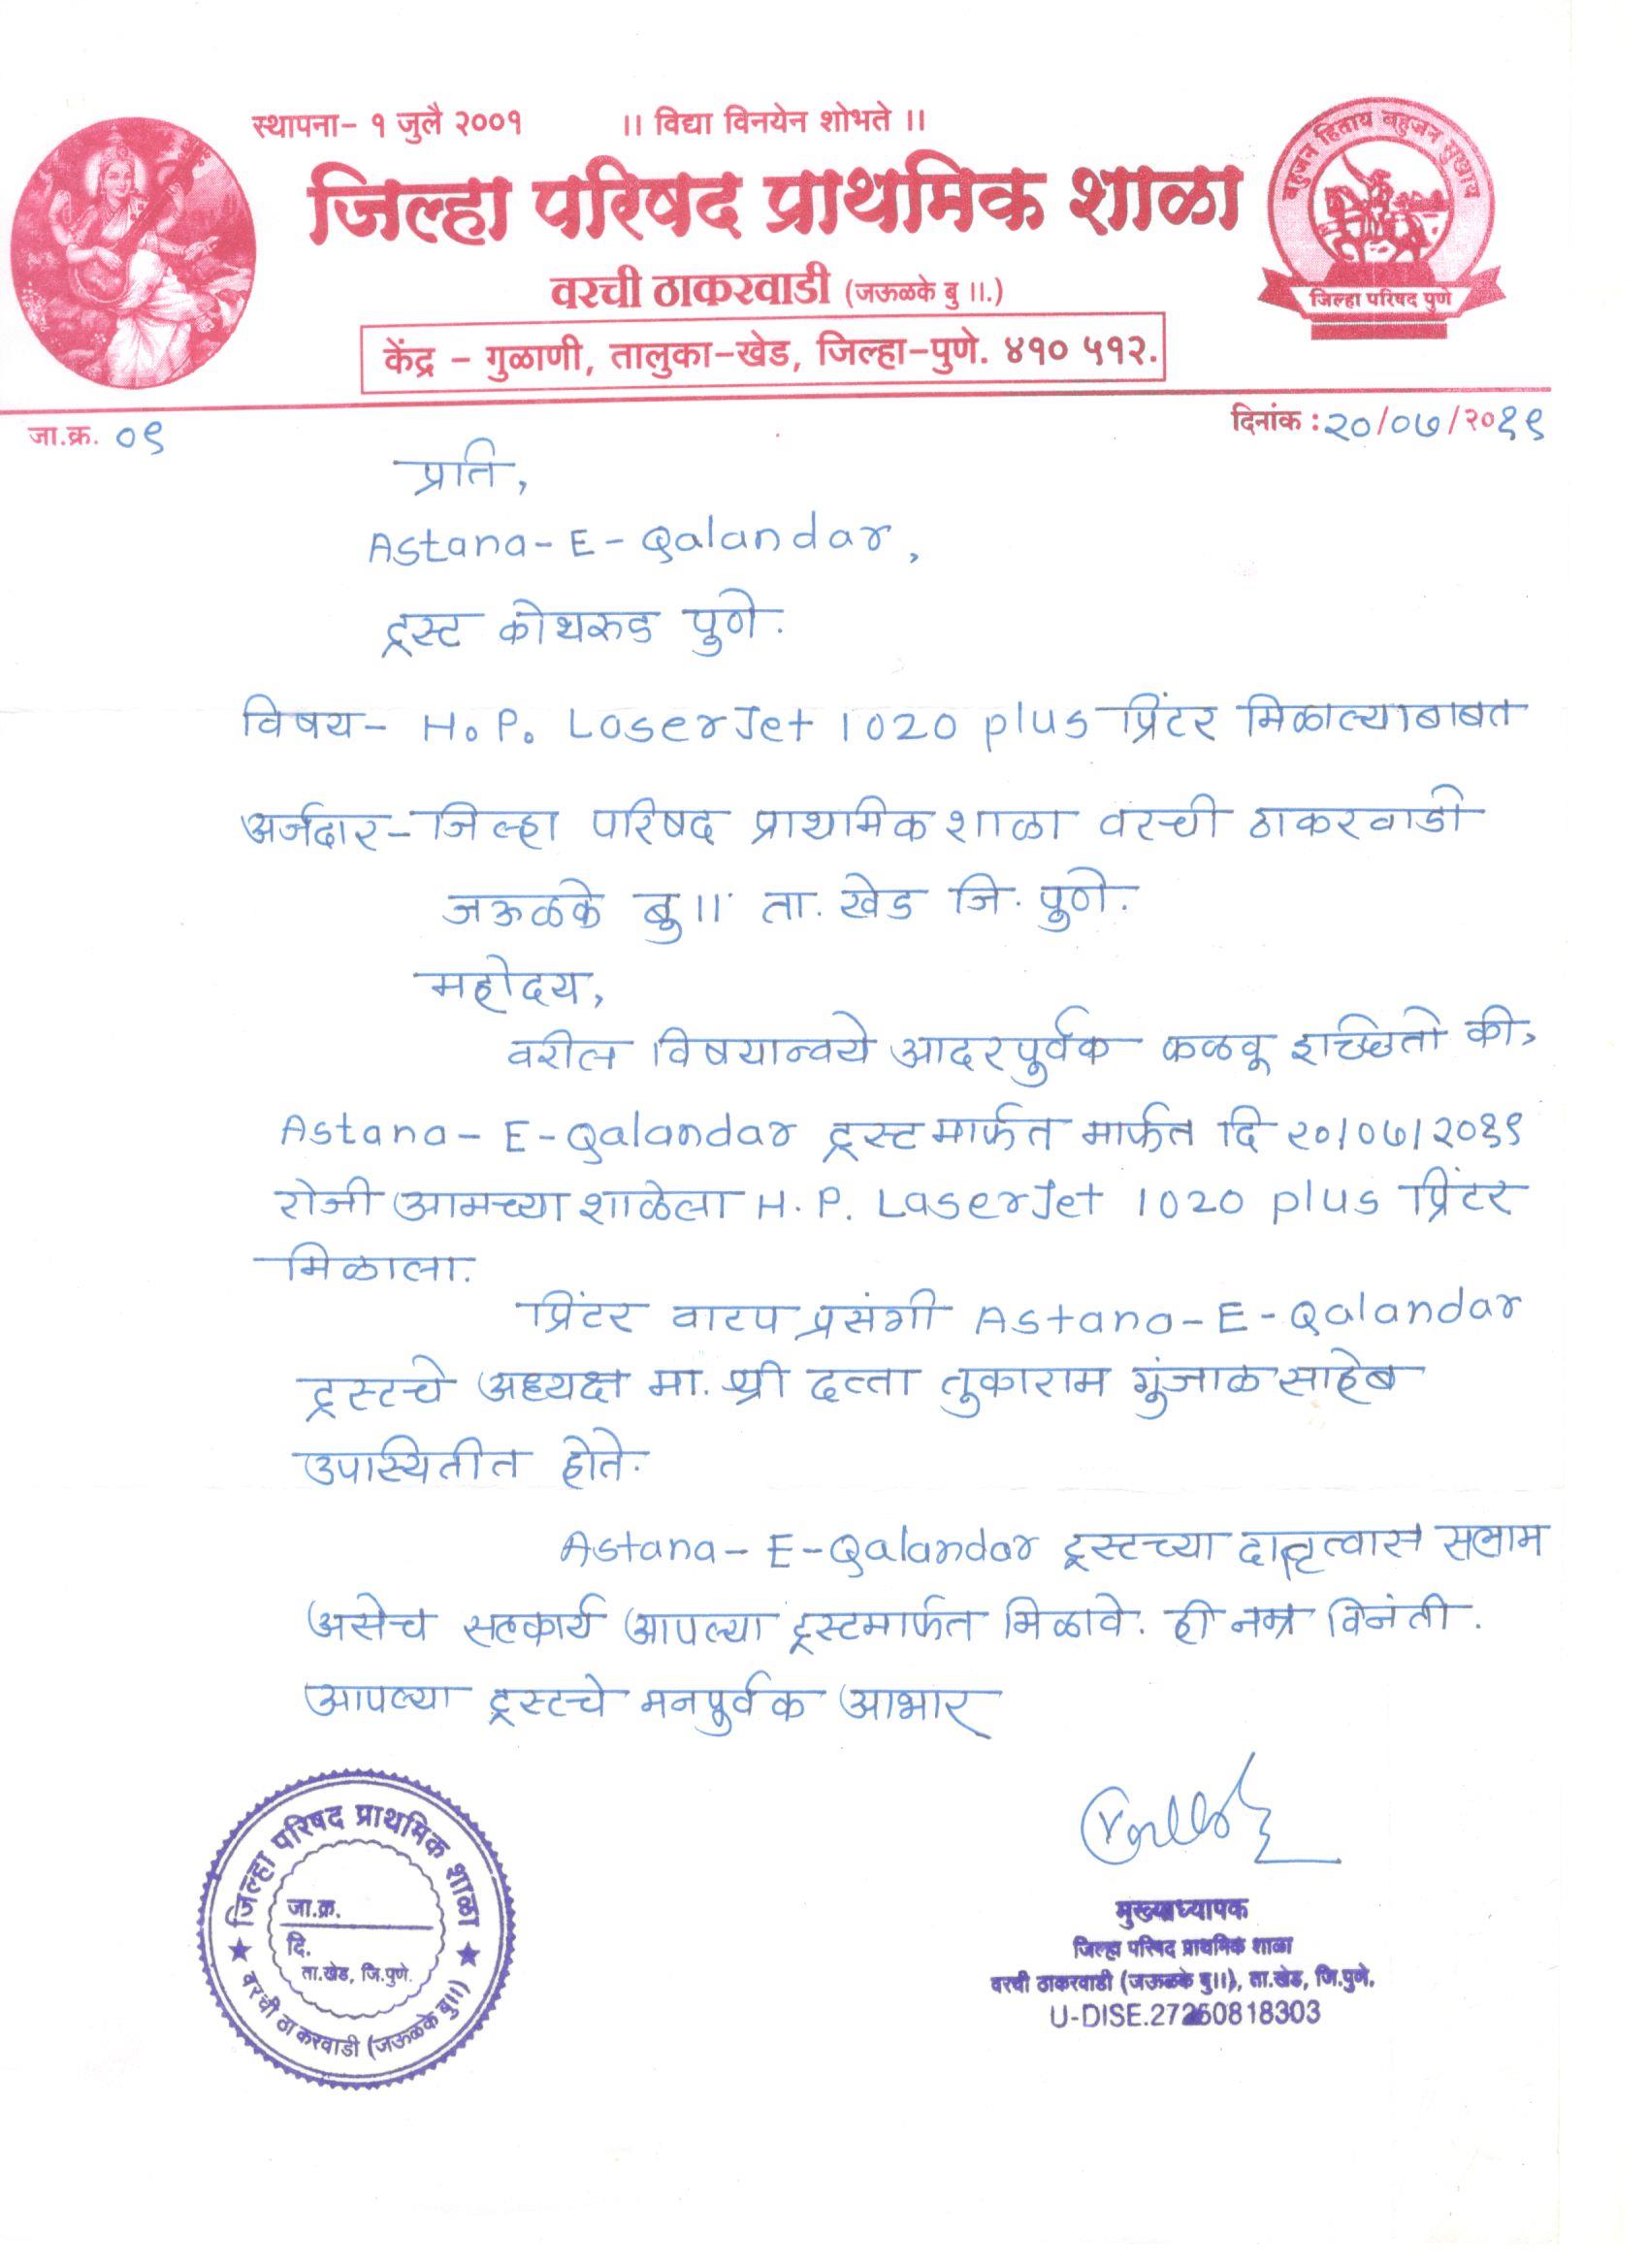 स्थापना- १ जुलै २००१
।। विद्या विनयेन शोभते ।।
जिल्हा परिषद प्राथमिक शाळा
वरची ठाकरवाडी (जऊळके बु ।।.)
केंद्र - गुळाणी, तालुका-खेड, जिल्हा-पुणे. ४१० ५१२.
बहुजन हिताय बहुजन सुखाय
जिल्हा परिषद पुणे
जा.क्र. ०९
दिनांक : २०/०७/२०१९
प्रति,
Astana-E-Qalandar,
ट्रस्ट कोथरुड पुणे.
विषय- H.P. LaserJet 1020 plus प्रिंटर मिळाल्याबाबत
अर्जदार- जिल्हा परिषद प्राथमिक शाळा वरची ठाकरवाडी
जऊळके बु॥ ता. खेड जि. पुणे.
महोदय,
वरील विषयान्वये आदरपुर्वक कळवू इच्छितो की,
Astana-E-Qalandar ट्रस्टमार्फत मार्फत दि २०/०७/२०१९
रोजी आमच्या शाळेला H.P. LaserJet 1020 plus प्रिंटर
मिळाला.
प्रिंटर वाटप प्रसंगी Astana-E-Qalandar
ट्रस्टचे अध्यक्ष मा. श्री दत्ता तुकाराम गुंजाळ साहेब
उपस्थितीत होते.
Astana-E-Qalandar ट्रस्टच्या दातृत्वास सलाम
असेच सहकार्य आपल्या ट्रस्टमार्फत मिळावे. ही नम्र विनंती.
आपल्या ट्रस्टचे मनपुर्वक आभार
जिल्हा परिषद प्राथमिक शाळा
जा.क्र.
दि.
ता.खेड, जि.पुणे.
वरची ठाकरवाडी (जऊळके बु॥)
मुख्याध्यापक
जिल्हा परिषद प्राथमिक शाळा
वरची ठाकरवाडी (जऊळके बु॥), ता.खेड, जि.पुणे.
U-DISE.27250818303